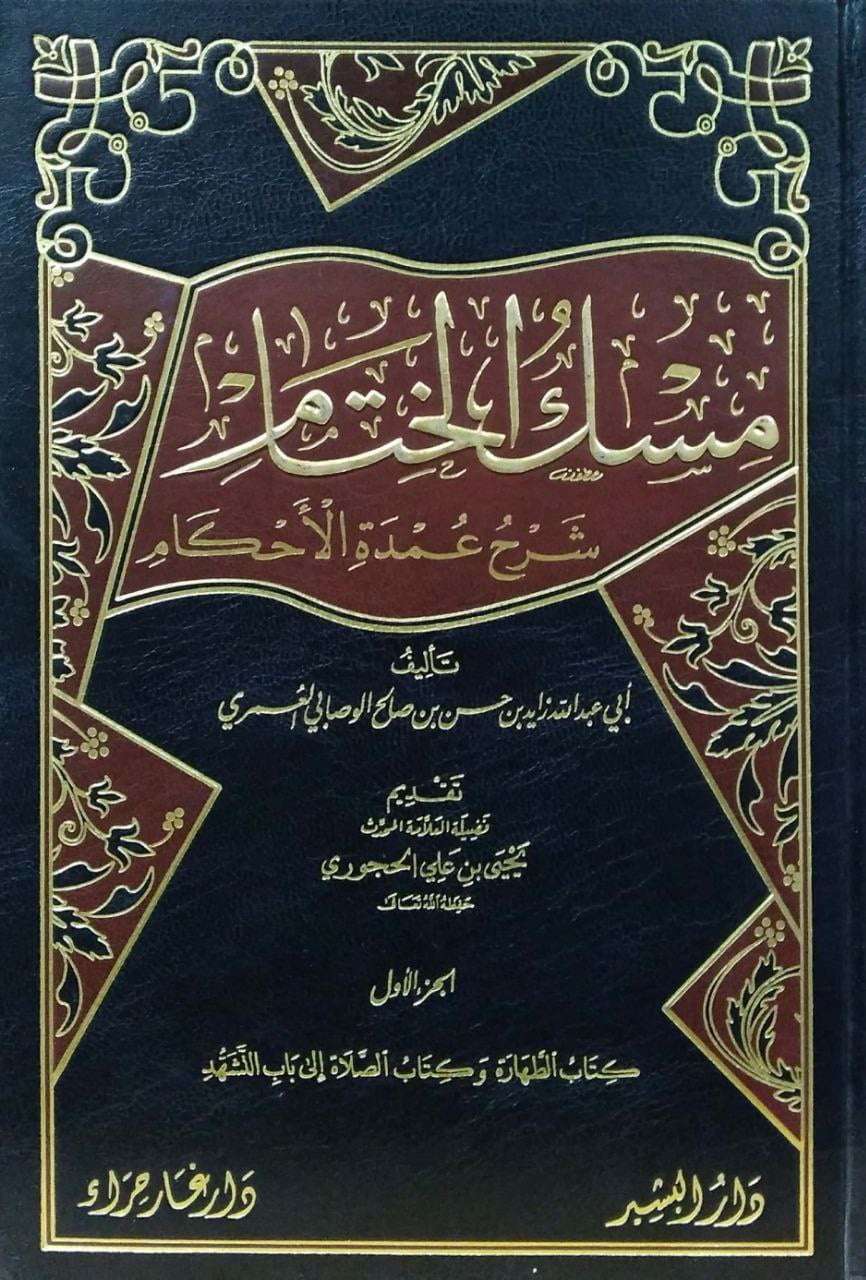 مِسْكُ الخِتَامِ
شَرْحُ عُمْدَةِ الْأَحْكَامِ
تَأليفُ
أبي عبد الله زايد بن حسن بن صالح الوصابي العُمري
تَقْدِيم
فَضِيلَة العَلَّامَة المُحَدِّث
يَحْيَى بن عَلي الحجوري
حَفِظَهُ اللهُ تَعَالَى
الجزء الأول
كِتَابُ الطَّهَارَة وَكِتَابُ الصَّلَاة إِلَى بَابِ التَّشَهُّدِ
دَارُ البَشِير
دَار غَار حِرَاء